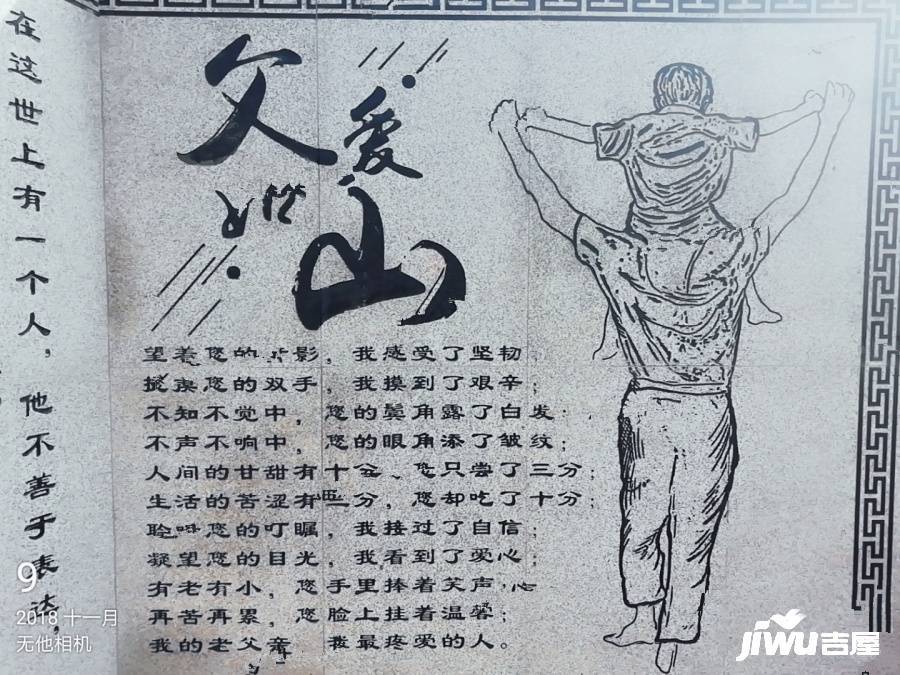 在这世上有一个人，他不善于表达，
父爱
如山
望着您的背影，我感受了坚韧；
摸您的双手，我摸到了艰辛；
不知不觉中，您的鬓角露了白发；
不声不响中，您的眼角添了皱纹；
人间的甘甜有十分、您只尝了三分；
生活的苦涩有三分，您却吃了十分；
聆听您的叮嘱，我接过了自信；
凝望您的目光，我看到了爱心；
有老有小，您手里捧着笑声；心
再苦再累，您脸上挂着温馨；
我的老父亲 我最疼爱的人。
9
2018 十一月
无他相机
JIWU吉屋